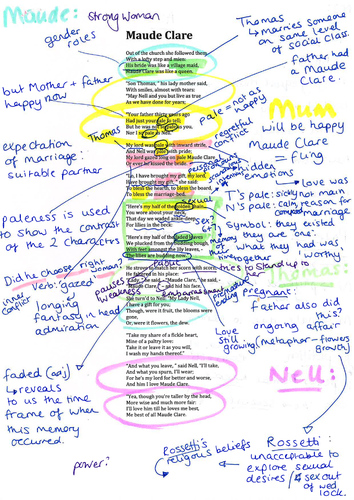 Maude:
strong woman
gender roles
Maude Clare
Thomas
↳ marries someone
on same level
of social class.
Father had
a Maude
Clare.
Out of the church she followed them
With a lofty step and mien:
His bride was like a village maid,
Maude Clare was like a queen.
but Mother + father
happy now
"Son Thomas," his lady mother said,
With smiles, almost with tears:
"May Nell and you but live as true
As we have done for years;
Mum
"Your father thirty years ago
Had just your tale to tell;
But he was not so pale as you,
Nor I so pale as Nell."
pale = not as
happy
Thomas
regretful
conflict
will be happy
Maude Clare
= fling
expectation
of marriage:
suitable partner
My lord was pale with inward strife,
And Nell was pale with pride;
My lord gazed long on pale Maude Clare
Or ever he kissed the bride.
hidden
emotions
"Lo, I have brought my gift, my lord,
Have brought my gift," she said:
"To bless the hearth, to bless the board,
To bless the marriage-bed.
love was
T's pale: sickly not main
N's pale: calm, reason for
marriage
paleness is used
to show the contrast
of the 2 characters
"Here's my half of the golden chain
You wore about your neck,
That day we waded ankle-deep
For lilies in the beck:
sex?
memory
Symbol: they existed
they are one.
what they had not
worthy
together
"Here's my half of the faded leaves
We plucked from the budding bough,
With feet amongst the lily leaves, -
The lilies are budding now."
Did he choose right
woman?
verb: 'gazed'
inner
conflict
longing
fantasy in head
admiration
pauses
weakness
tries to stand up to
Thomas:
He strove to match her scorn with scorn,
He faltered in his place:
"Lady," he said, - "Maude Clare," he said, -
"Maude Clare," – and hid his face.
embarrassment
pregnant:
father also did
this?
ongoing affair
Love
still
growing (metaphor - flowers
growth)
She turn'd to Nell: "My Lady Nell,
I have a gift for you;
Though, were it fruit, the blooms were gone,
Or, were it flowers, the dew.
faded (adj)
↳ reveals
to us the time
frame of when
this memory
occurred.
"Take my share of a fickle heart,
Mine of a paltry love:
Take it or leave it as you will,
I wash my hands thereof."
Nell:
"And what you leave," said Nell, "I'll take,
And what you spurn, I'll wear;
For he's my lord for better and worse,
And him I love Maude Clare.
"Yea, though you're taller by the head,
More wise and much more fair:
I'll love him till he loves me best,
Me best of all Maude Clare.
power?
Rossetti's
religious beliefs
Rossetti:
unacceptable to
explore sexual
desires / sex out
of wed
lock.